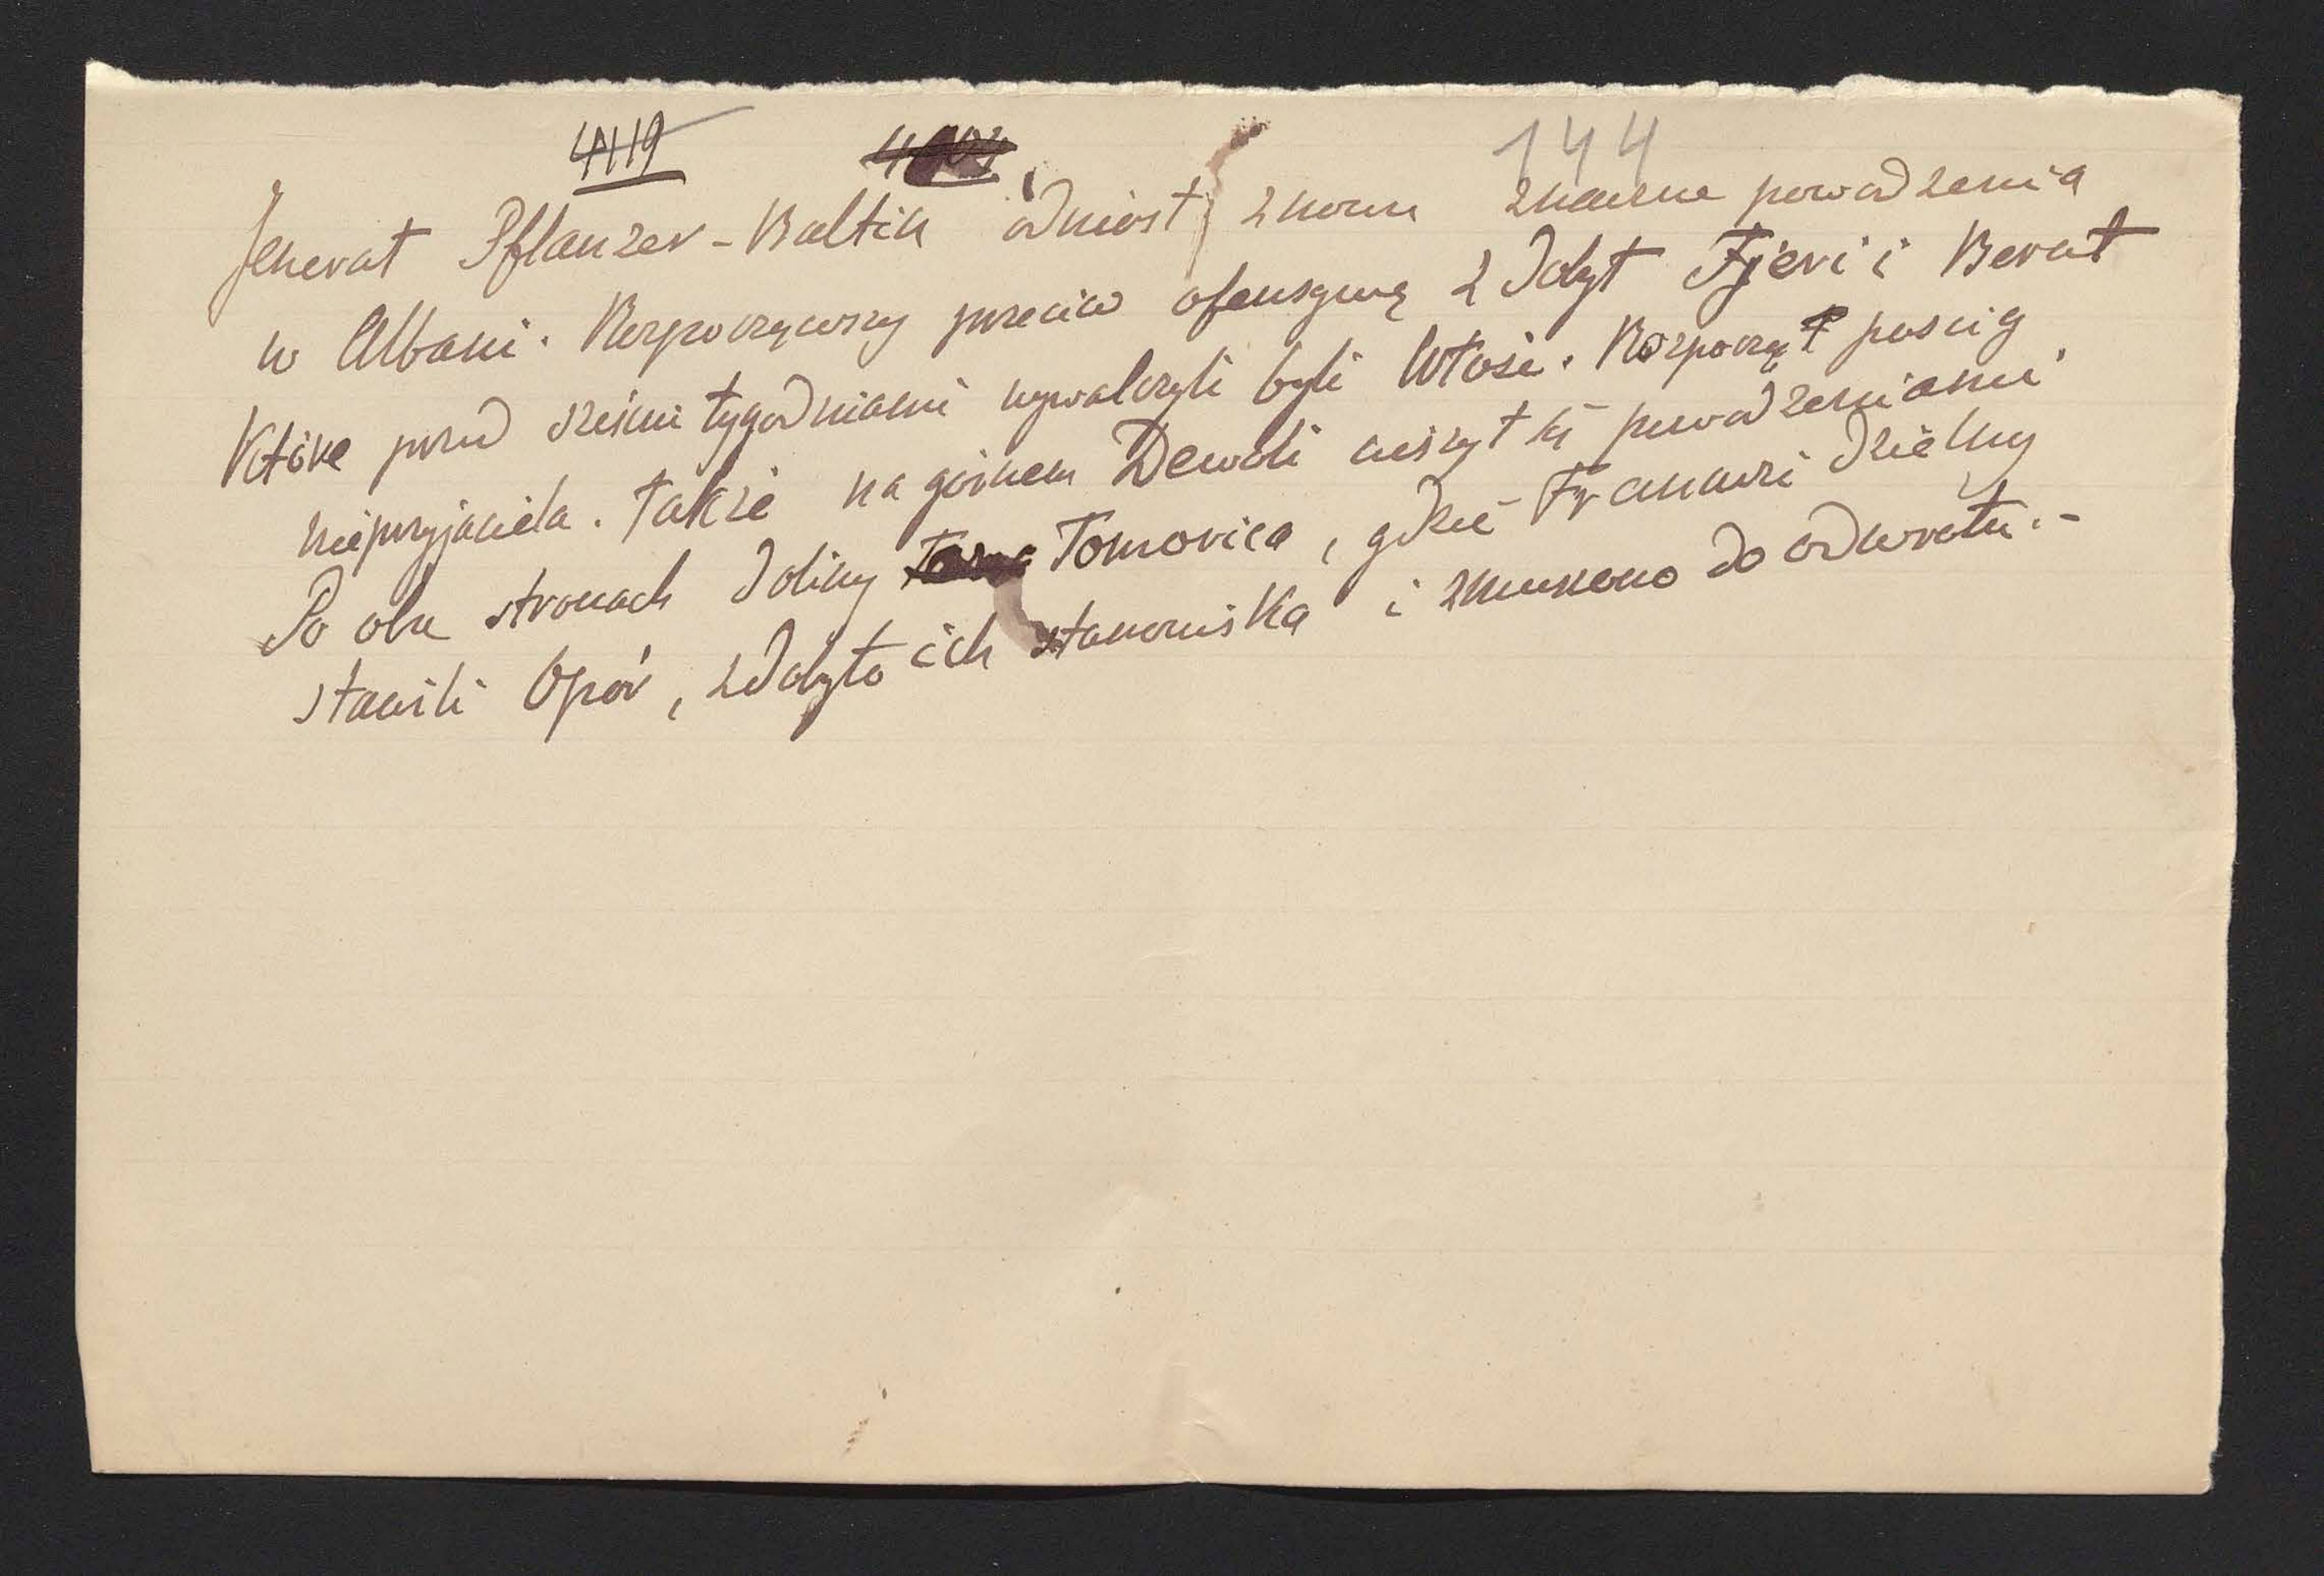 4119 144
Jenerał Pflanzer-Baltin odniósł znowu znaczne powodzenia
w Albani. Rozpocząwszy przeciw ofensywę zdobył Fjeri i Berat
które przed sześciu tygodniami wywalczyli byli Włosi. Rozpoczął pościg
nieprzyjaciela. Także na górnem Dewoli cieszył się powodzeniami.
Po obu stronach doliny Tomorica, gdzie Francuzi dzielny
stawili opór, zdobyto ich stanowiska i zmuszono do odwrotu.-